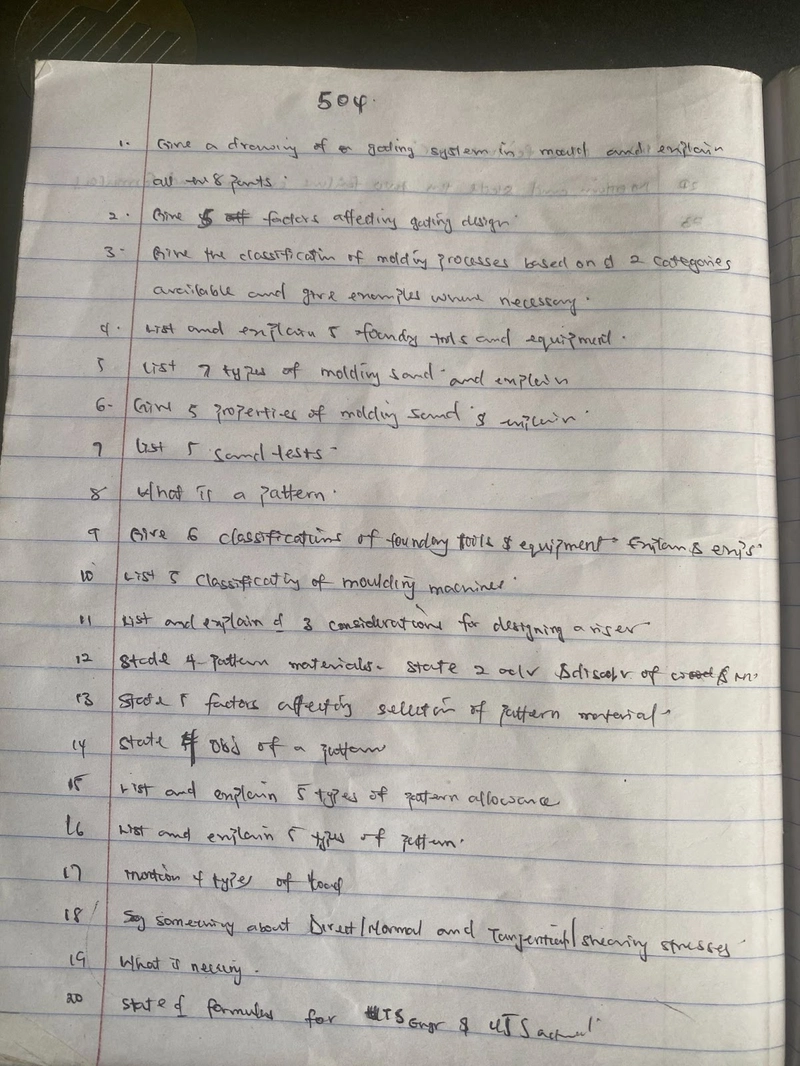 504.
1. Give a drawing of a gating system in mould and explain
all the 8 parts.
2. Give 5 factors affecting gating design
3- Give the classification of molding processes based on d 2 categories
available and give examples where necessary.
4. List and explain 5 foundry tools and equipment.
5 List 7 types of molding sand and explain
6- Give 5 properties of molding sand & explain
7 List 5 sand tests-
8 What is a pattern.
9 Give 6 classifications of foundry tools & equipment
10 List 5 classificatiy of moulding machines
11 List and explain d 3 considerations for designing a riser
12 State 4-pattern materials. State 2 adv & disadv of
13 State 5 factors affecting selection of pattern material
14 State obj of a pattern
15 List and explain 5 types of pattern allowance
16 List and explain 5 types of pattern.
17 mention 4 types of load
18 Say something about Direct/Normal and Tangential/shearing stresses
19 What is necking.
20 State d formulas for UTS Engr & UTS actual